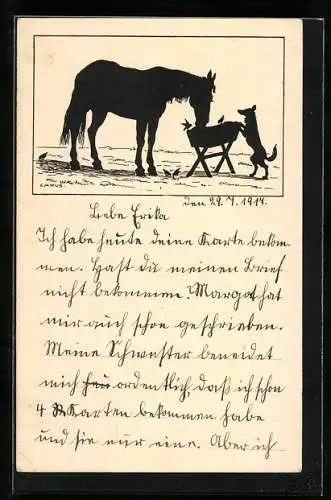 CARUS.
den 29.7.1919.
Liebe Erika
Ich habe heute deine Karte bekom-
men. Hast du meinen Brief
nicht bekommen. Margot hat
mir auch schon geschrieben.
Meine Schwester beneidet
mich ordentlich, daß ich schon
4 Karten bekommen habe
und sie nur eine. Aber ich